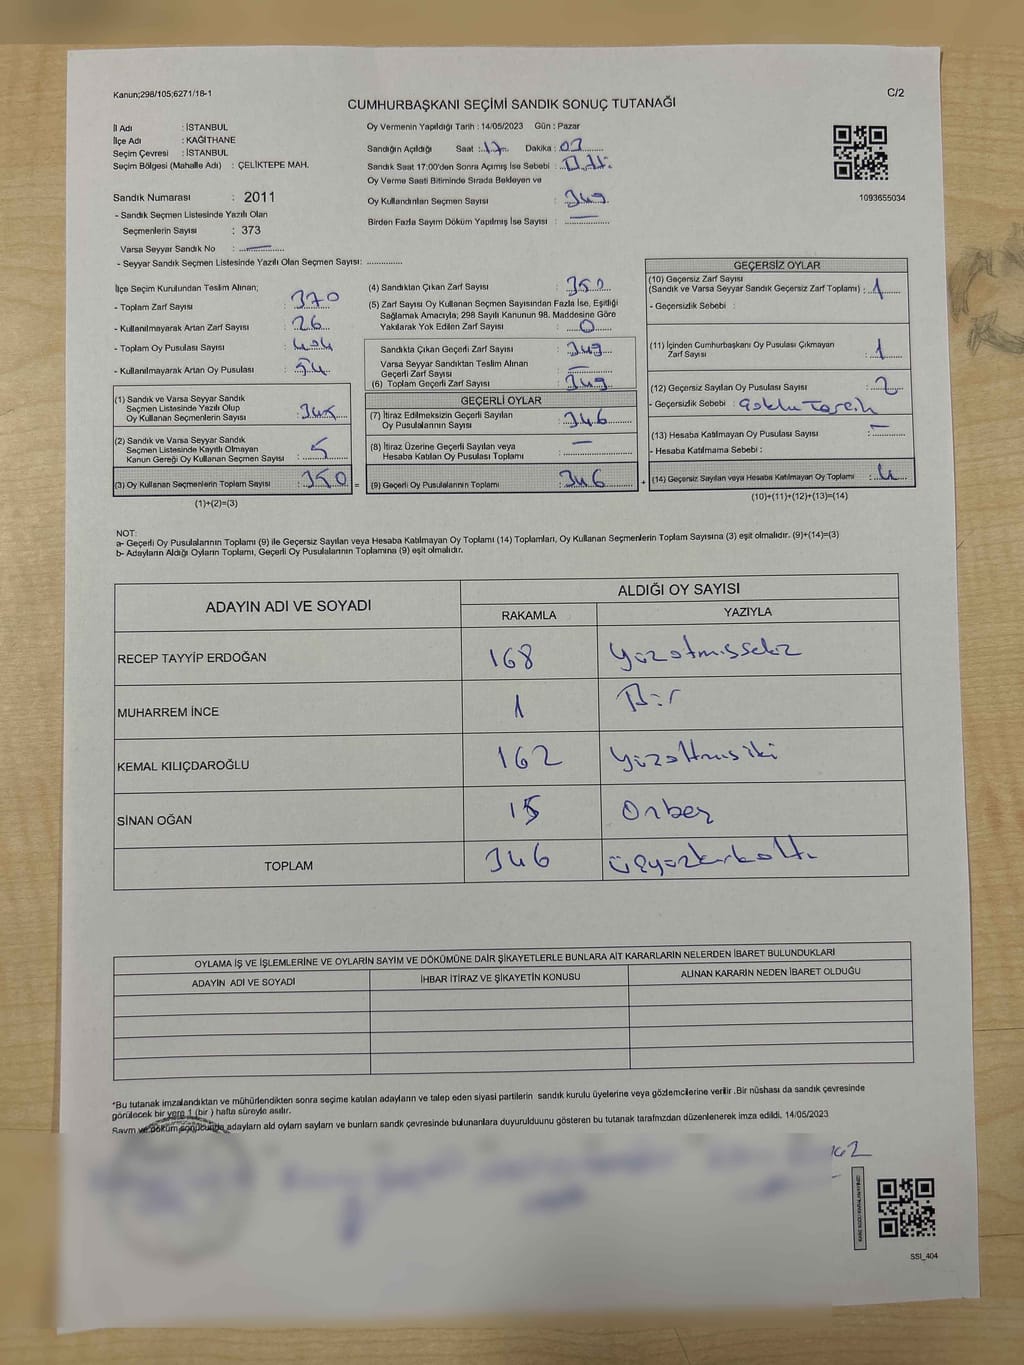 Kanun;298/105;6271/18-1
C/2
CUMHURBAŞKANI SEÇİMİ SANDIK SONUÇ TUTANAĞI
İl Adı : İSTANBUL
İlçe Adı : KAĞITHANE
Seçim Çevresi : İSTANBUL
Seçim Bölgesi (Mahalle Adı) : ÇELİKTEPE MAH.
Oy Vermenin Yapıldığı Tarih : 14/05/2023 Gün : Pazar
Sandığın Açıldığı Saat : 17 Dakika : 03
Sandık Saat 17:00'den Sonra Açımış İse Sebebi :
Oy Verme Saati Bitiminde Sırada Bekleyen ve
Oy Kullandırılan Seçmen Sayısı : 349
Birden Fazla Sayım Döküm Yapılmış İse Sayısı : —
1093655034
Sandık Numarası : 2011
- Sandık Seçmen Listesinde Yazılı Olan
Seçmenlerin Sayısı : 373
Varsa Seyyar Sandık No : —
- Seyyar Sandık Seçmen Listesinde Yazılı Olan Seçmen Sayısı: ..............
İlçe Seçim Kurulundan Teslim Alınan;
- Toplam Zarf Sayısı : 370
- Kullanılmayarak Artan Zarf Sayısı : 26
- Toplam Oy Pusulası Sayısı : 404
- Kullanılmayarak Artan Oy Pusulası : 54
(1) Sandık ve Varsa Seyyar Sandık
Seçmen Listesinde Yazılı Olup
Oy Kullanan Seçmenlerin Sayısı : 345
(2) Sandık ve Varsa Seyyar Sandık
Seçmen Listesinde Kayıtlı Olmayan
Kanun Gereği Oy Kullanan Seçmen Sayısı : 5
(3) Oy Kullanan Seçmenlerin Toplam Sayısı : 350 =
(1)+(2)=(3)
(4) Sandıktan Çıkan Zarf Sayısı : 350
(5) Zarf Sayısı Oy Kullanan Seçmen Sayısından Fazla İse, Eşitliği
Sağlamak Amacıyla; 298 Sayılı Kanunun 98. Maddesine Göre
Yakılarak Yok Edilen Zarf Sayısı : 0
Sandıkta Çıkan Geçerli Zarf Sayısı : 349
Varsa Seyyar Sandıktan Teslim Alınan
Geçerli Zarf Sayısı : —
(6) Toplam Geçerli Zarf Sayısı : 349
GEÇERLİ OYLAR
(7) İtiraz Edilmeksizin Geçerli Sayılan
Oy Pusulalarının Sayısı : 346
(8) İtiraz Üzerine Geçerli Sayılan veya
Hesaba Katılan Oy Pusulası Toplamı : —
(9) Geçerli Oy Pusulalarının Toplamı : 346 +
GEÇERSİZ OYLAR
(10) Geçersiz Zarf Sayısı
(Sandık ve Varsa Seyyar Sandık Geçersiz Zarf Toplamı) : 1
- Geçersizlik Sebebi :
(11) İçinden Cumhurbaşkanı Oy Pusulası Çıkmayan
Zarf Sayısı : 1
(12) Geçersiz Sayılan Oy Pusulası Sayısı : 2
- Geçersizlik Sebebi : Çoklu Tercih
(13) Hesaba Katılmayan Oy Pusulası Sayısı : —
- Hesaba Katılmama Sebebi :
(14) Geçersiz Sayılan veya Hesaba Katılmayan Oy Toplamı : 4
(10)+(11)+(12)+(13)=(14)
NOT:
a- Geçerli Oy Pusulalarının Toplamı (9) ile Geçersiz Sayılan veya Hesaba Katılmayan Oy Toplamı (14) Toplamları, Oy Kullanan Seçmenlerin Toplam Sayısına (3) eşit olmalıdır. (9)+(14)=(3)
b- Adayların Aldığı Oyların Toplamı, Geçerli Oy Pusulalarının Toplamına (9) eşit olmalıdır.
ADAYIN ADI VE SOYADI
ALDIĞI OY SAYISI
RAKAMLA YAZIYLA
RECEP TAYYİP ERDOĞAN 168 Yüzatmışsekiz
MUHARREM İNCE 1 Bir
KEMAL KILIÇDAROĞLU 162 Yüzaltmışiki
SİNAN OĞAN 15 Onbeş
TOPLAM 346 üçyüzkırkaltı
OYLAMA İŞ VE İŞLEMLERİNE VE OYLARIN SAYIM VE DÖKÜMÜNE DAİR ŞİKAYETLERLE BUNLARA AİT KARARLARIN NELERDEN İBARET BULUNDUKLARI
ADAYIN ADI VE SOYADI İHBAR İTİRAZ VE ŞİKAYETİN KONUSU ALINAN KARARIN NEDEN İBARET OLDUĞU
*Bu tutanak imzalandıktan ve mühürlendikten sonra seçime katılan adayların ve talep eden siyasi partilerin sandık kurulu üyelerine veya gözlemcilerine verilir .Bir nüshası da sandık çevresinde
görülecek bir yere 1 (bir ) hafta süreyle asılır.
Sayım ve döküm sonucunda adayların ald oyların sayları ve bunların sandk çevresinde bulunanlara duyurulduunu gösteren bu tutanak tarafmzdan düzenlenerek imza edildi. 14/05/2023
SSI_404